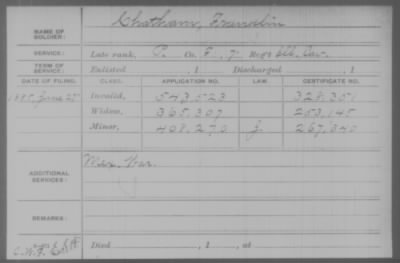 NAME OF SOLDIER: Chatham, Franklin
SERVICE: Late rank, P. Co. F, 7 Reg't Ill. Cav.
TERM OF SERVICE: Enlisted , 1 Discharged , 1
DATE OF FILING. CLASS. APPLICATION NO. LAW. CERTIFICATE NO.
1885, June 25 Invalid, 543,523 328,351
Widow, 365,307 253,145
Minor, 408,270 J. 267,040
ADDITIONAL SERVICES: Mex. War.
REMARKS:
Died , 1 , at